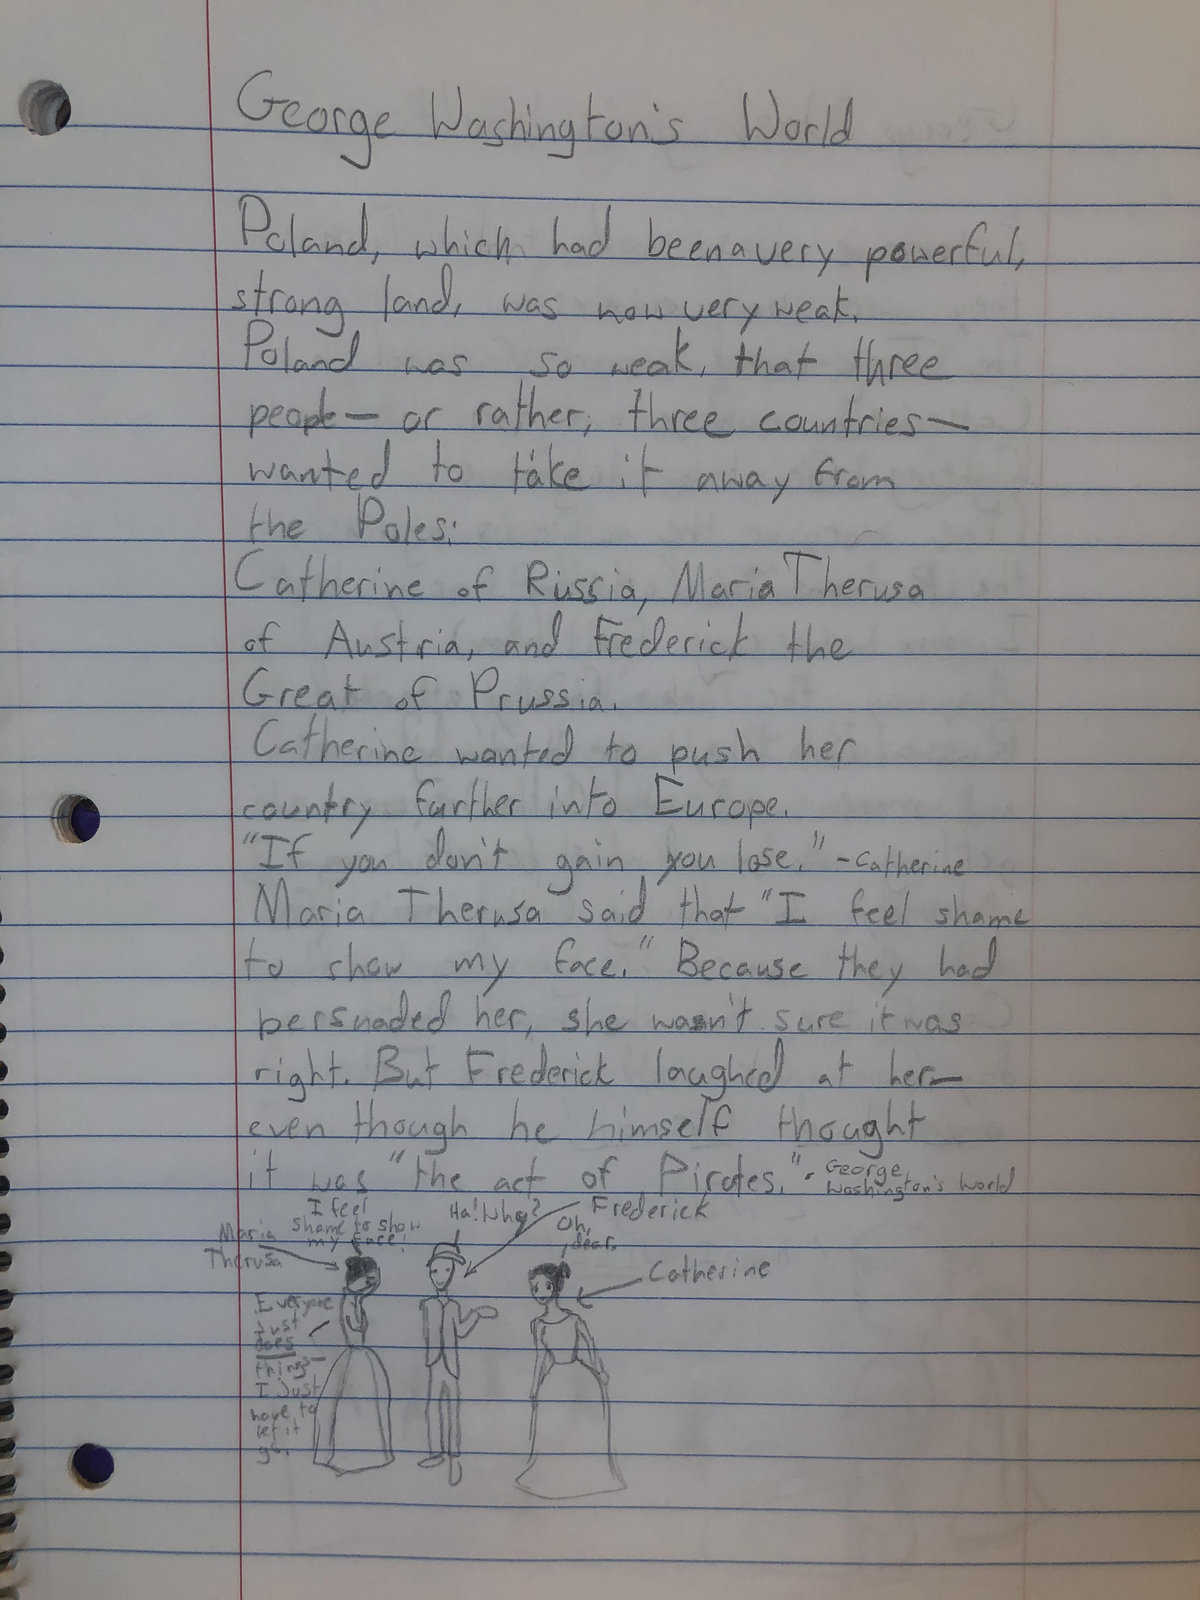 George Washington's World
Poland, which had been a very powerful,
strong land, was now very weak.
Poland was so weak, that three
people— or rather, three countries—
wanted to take it away from
the Poles:
Catherine of Russia, Maria Therusa
of Austria, and Frederick the
Great of Prussia.
Catherine wanted to push her
country further into Europe.
"If you don't gain, you lose." -Catherine
Maria Therusa said that "I feel shame
to show my face." Because they had
persuaded her, she wasn't sure it was
right. But Frederick laughed at her—
even though he himself thought
it was "the act of Pirates." - George
Washington's World
Maria
Therusa
I feel
shame to show
my face!
Ha! Why?
Frederick
Oh,
dear.
Catherine
Everyone
just
does
things—
I just
have to
let it
go.